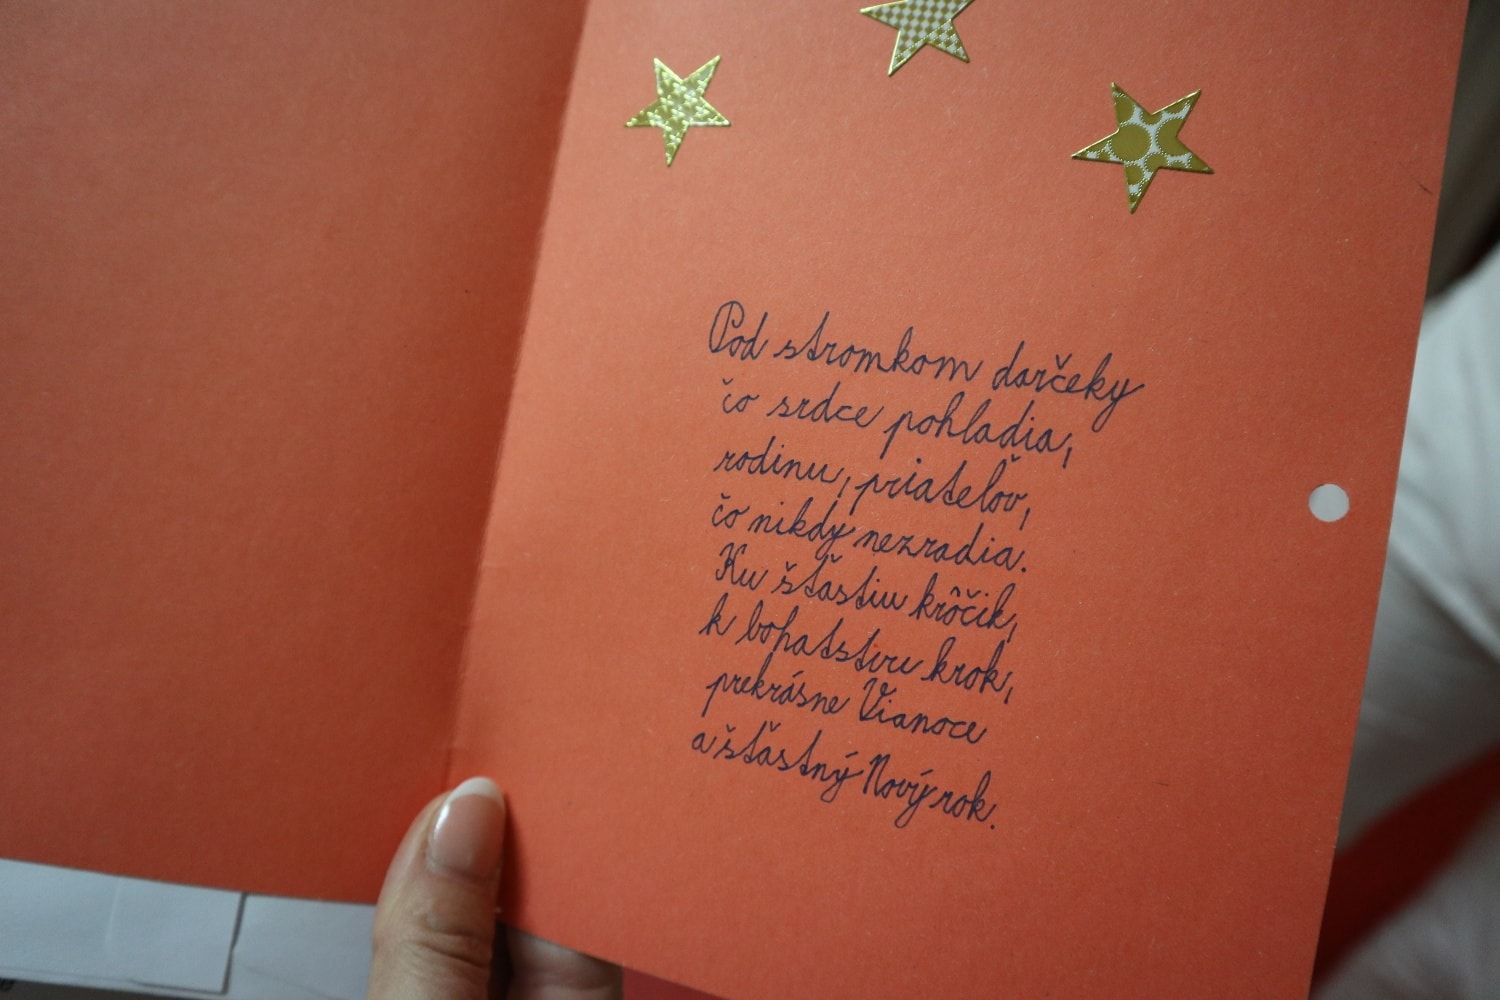 Pod stromkom darčeky
čo srdce pohladia,
rodinu, priateľov,
čo nikdy nezradia.
Ku šťastiu krôčik,
k bohatstvu krok,
prekrásne Vianoce
a šťastný Nový rok.